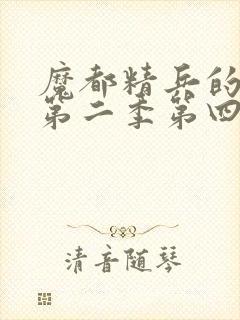 魔都精兵的
第二季第四
清音随琴